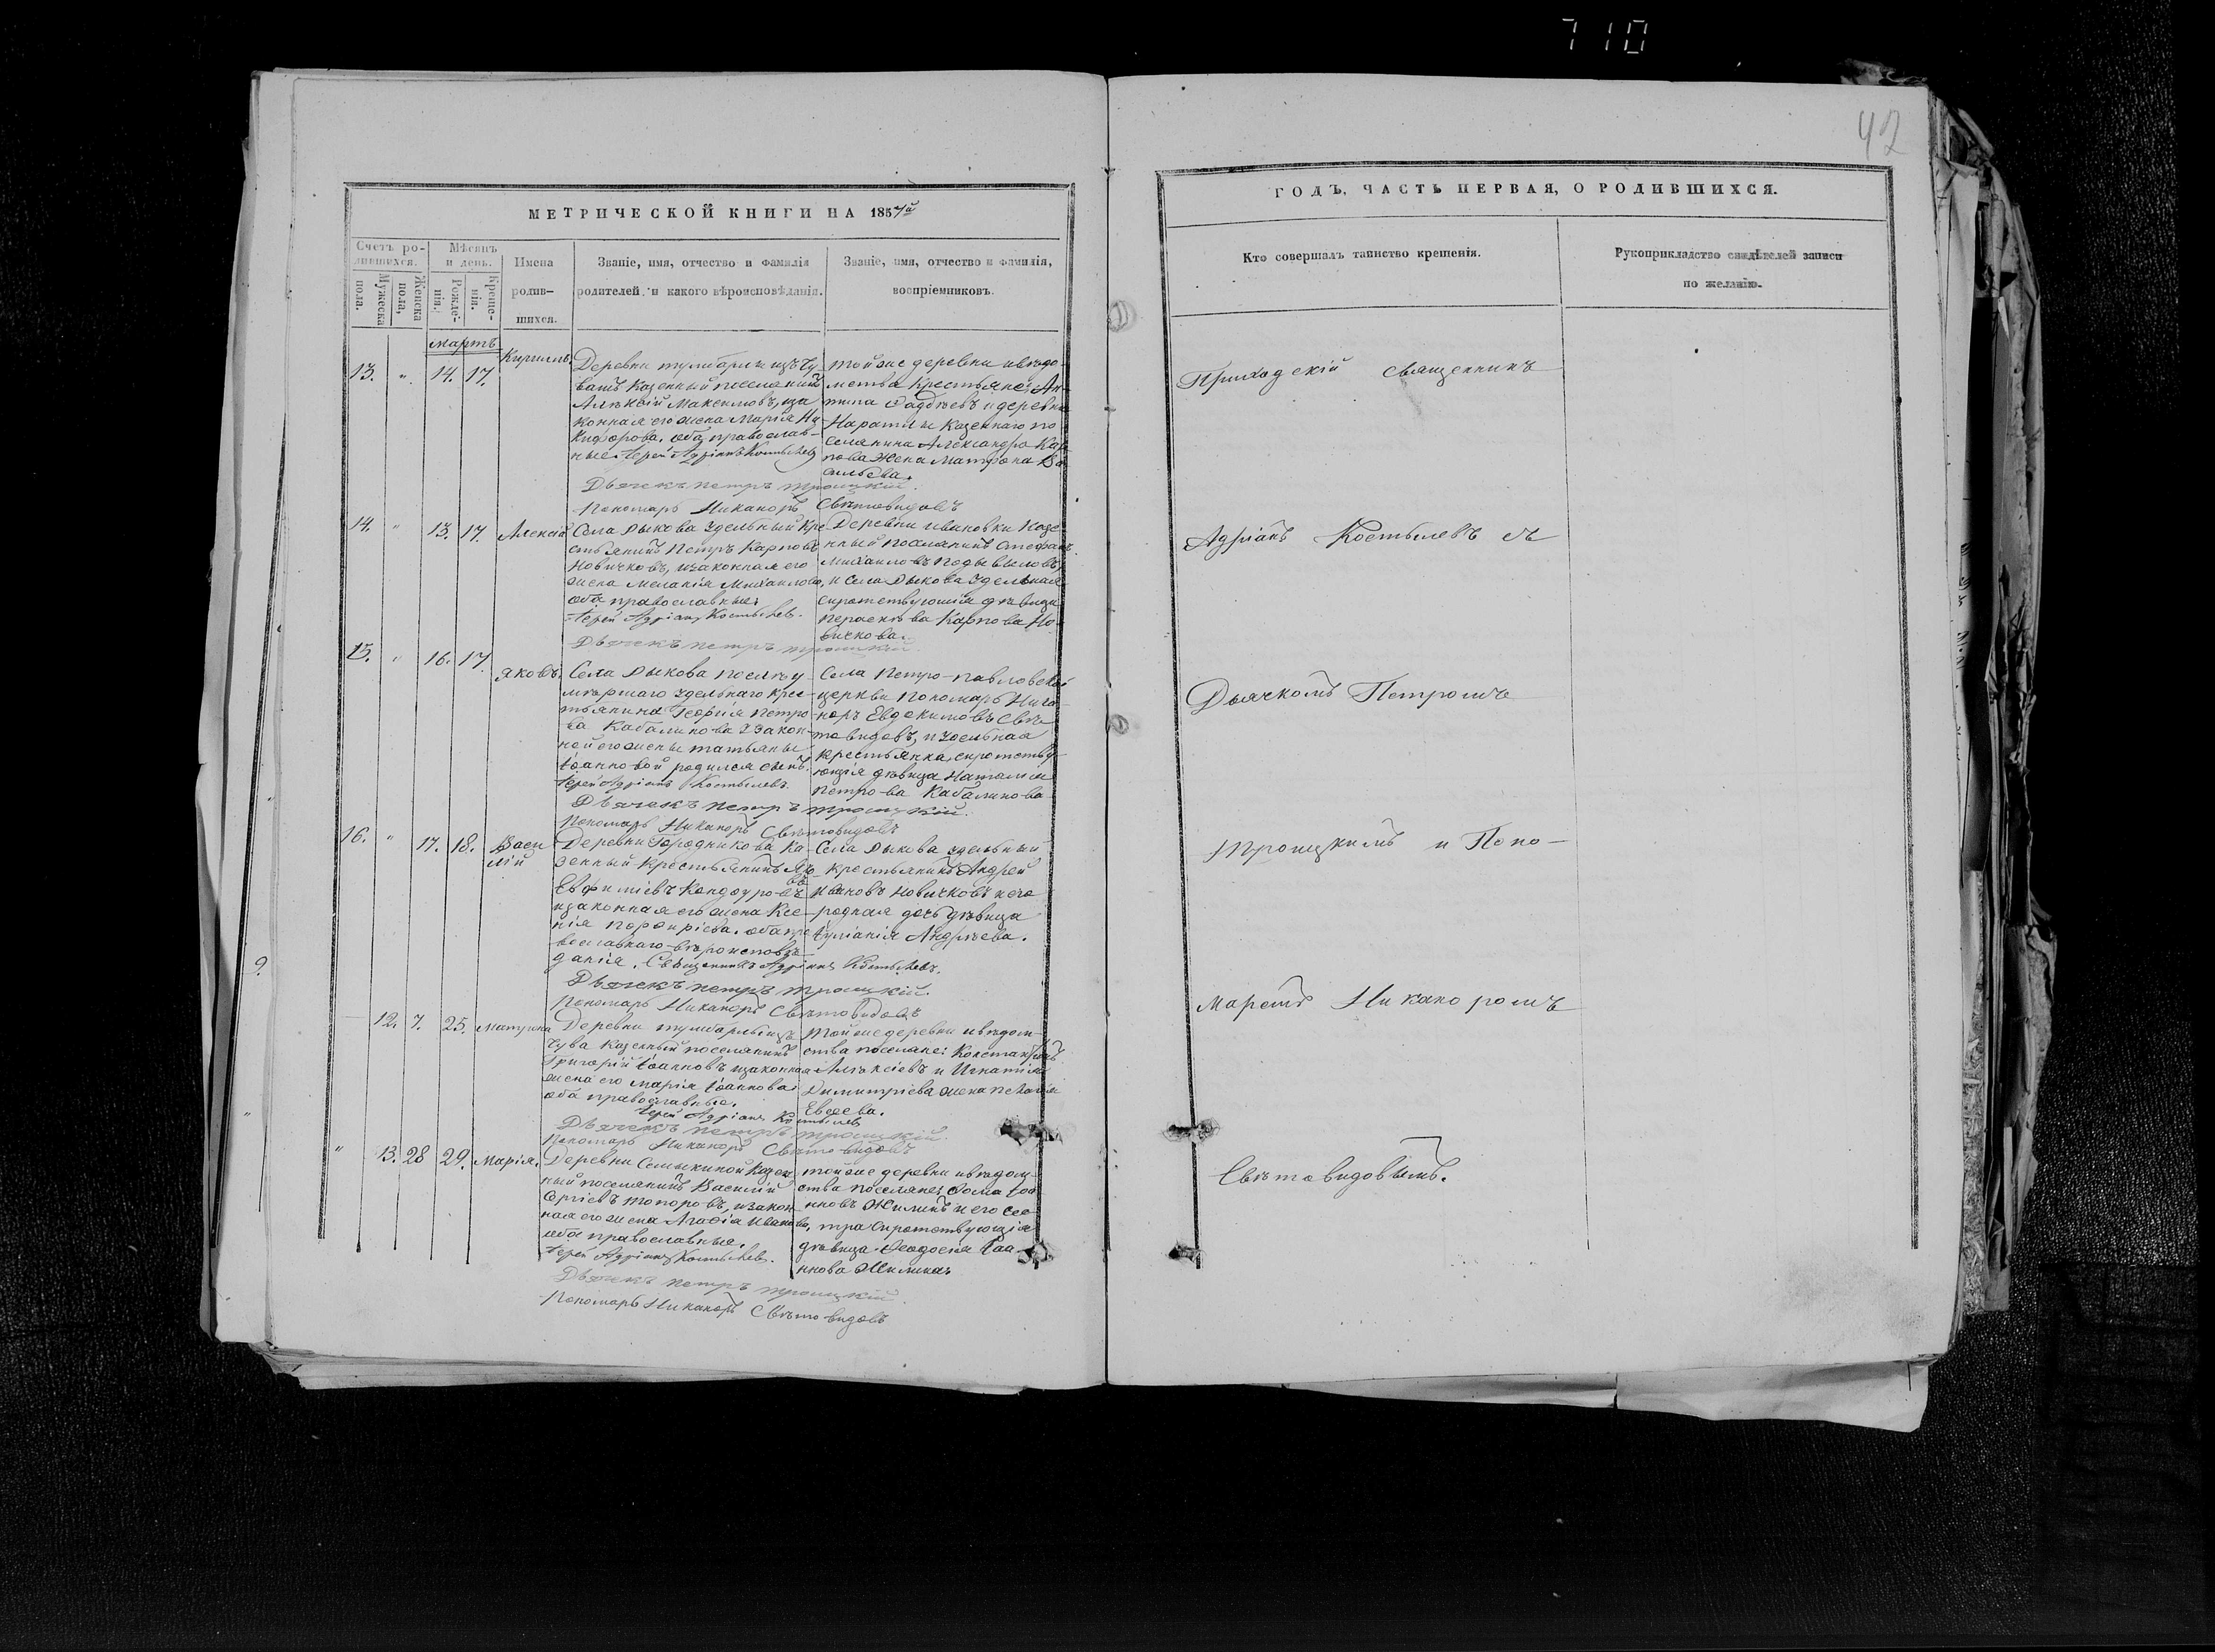 710
42
МЕТРИЧЕСКОЙ КНИГИ НА 1857й
ГОДЪ, ЧАСТЬ ПЕРВАЯ, О РОДИВШИХСЯ.
Счетъ ро-
дившихся.
Мужеска
пола.
Женска
пола,
Мѣсяцъ
и день.
Рожде-
нія.
Креще-
нія.
Имена
родив-
шихся.
Званіе, имя, отчество и фамилія
родителей и какого вѣроисповѣданія.
Званіе, имя, отчество и фамилія,
воспріемниковъ.
Кто совершалъ таинство крещенія.
Рукоприкладство свидѣтелей записи
по желанію.
мартъ
13. " 14. 17. Кириллъ.
Деревни изъ чу
вашъ Казенный поселянинъ
Алѣксій Максимовъ, иза
конная его жена Марія Ни
кифорова. оба православ-
ные. Іерей Адріанъ Костылевъ
Дьячекъ петръ троицкій.
Пономарь Никаноръ Свѣтовидовъ
той же деревни и вѣдо
мства крестьяне: Ан-
типа Фаддѣевъ и деревни
казеннаго по
селянина Александра Кар
пова жена Матрона Ва
сильева.
14. " 13. 17. Алексій
Села Рыкова Удельный Кре
стьянинъ Петръ Карповъ
Новичковъ, изаконная его
жена Меланія Михаилова,
оба православные:
Іерей Адріанъ Костылевъ.
Дьячекъ петръ троицкій
Деревни Ивановки Казе
нный поселянинъ Стефанъ
Михаиловъ
и Села Рыкова Удельная
сиротствующія дѣвица
Параскѣва Карпова Но-
вичкова.
15. " 16. 17. Яковъ.
Села Рыкова послѣ у
мѣршаго Удельнаго крес-
тьянина Георгія Петро
ва Кабалинова Закон-
ной его жены татьяны
Іоанновой родился сынъ.
Іерей Адріанъ Костылевъ.
Дьячекъ петръ троицкій.
Пономарь Никаноръ Свѣтовидовъ
Села Петро-павловской
церкви Пономарь Ника-
норъ Евдокимовъ Свѣ-
товидовъ, и Удельная
Крестьянка, сиротству-
ющія дѣвица Наталія
Петрова Кабалинова
16. " 17. 18. Васи
лій
Деревни Городникова Ка-
зенный Крестьянинъ Яко
въ
Евфиміевъ Кондауровъ
изаконная его жена Ксе-
нія Порфиріева. оба пра
вославнаго вѣроисповѣ-
данія. Священникъ Адріанъ Костылевъ.
Дьячекъ петръ троицкій.
Пономарь Никаноръ Свѣтовидовъ
Села Рыкова Удельный
крестьянинъ Андрей
Ивановъ Новичковъ и его
родная дочь дѣвица
Іуліанія Андреева.
9.
12. 7. 25. Матрона
Деревни изъ
чува Казенный поселянинъ
Григорій Іоанновъ изаконная
жена его Марія Іоаннова:
оба православные.
Іерей Адріанъ Костылевъ
Дьячекъ петръ троицкій.
Пономарь Никаноръ Свѣтовидовъ
той же деревни и вѣдом-
ства поселяне: Константинъ
Алѣксіевъ и Игнатія
Димитріева жена пелагія
Евсеева.
" 13. 28 29. Марія.
Деревни Семыкиной Казен
ный поселянинъ Василій
Сергіевъ топоровъ, изакон
ная его жена Агафія Иванова,
оба православные.
Іерей Адріанъ Костылевъ.
Дьячекъ петръ троицкій.
Пономарь Никаноръ Свѣтовидовъ
той же деревни и вѣдом-
ства поселяне: Фома Іоа
нновъ Жилинъ и его сес
тра Сиротствующія
дѣвица Феодосія Іоа-
ннова Жилина.
Приходскій священникъ
Адріанъ Костылевъ съ
Дьячкомъ Петромъ
Троицкимъ и Поно-
маремъ Никаноромъ
Свѣтовидовымъ.